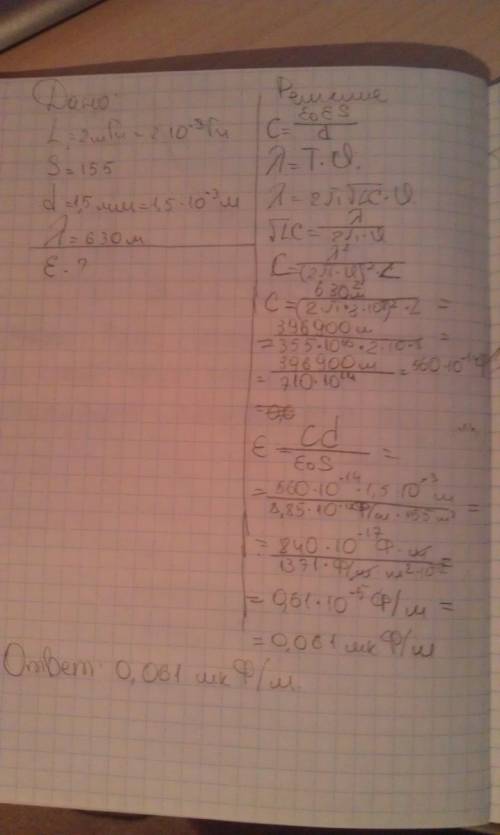 Дано:
L = 2мГн = 2·10⁻³Гн
S = 155
d = 1,5 мм = 1,5·10⁻³ м
λ = 630 м
ε - ?
Решение
C = ε₀εS/d
λ = T·υ.
λ = 2π√LC·υ
√LC = λ/2π·υ
C = λ²/(2π·υ)²·L
C = 630²м/(2π·3·10⁸)²·L =
= 396900 м/355·10¹⁶·2·10⁻³ =
= 396900 м/710·10¹⁴ = 560·10⁻¹⁴
ε = Cd/ε₀S =
= 560·10⁻¹⁴·1,5·10⁻³ м/8,85·10⁻¹²Ф/м·155 м² =
= 840·10⁻¹⁷ Ф·м/1371·Ф/м м²·10⁻¹² =
= 0,61·10⁻⁵ Ф/м =
= 0,061 мкФ/м
Ответ: 0,061 мкФ/м.